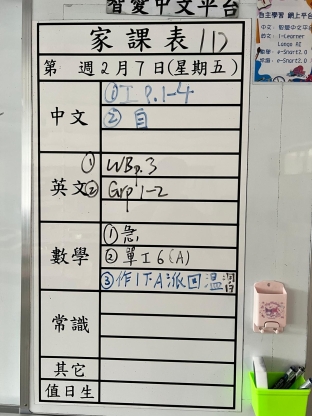 智愛中文平台
家課表 11)
第 週2月7日(星期五)
中文 ①工 P.1-4
②自
英文 ① WBp.3
② Grp 1-2
數學 ①急
②單工6(A)
③作1下A派回溫習
常識
其它
值日生
自主學習 網上平台
中文：智愛中文平台
英文：i-Learner
數學：e-Smart2.0
常識：e-Smart2.0